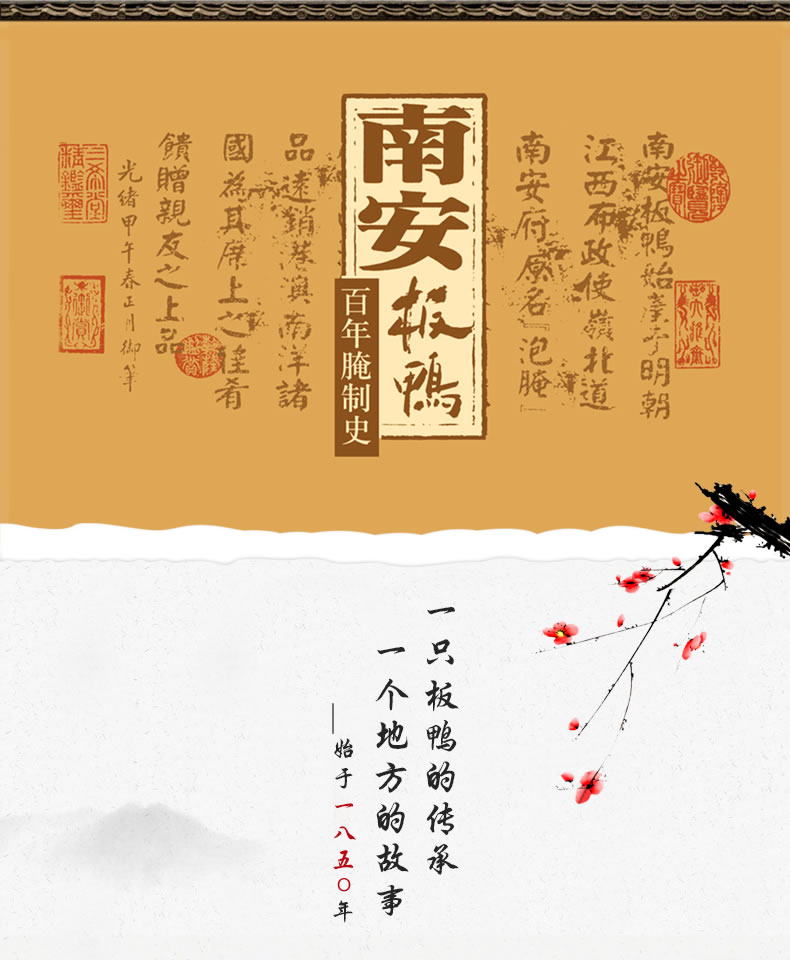 南安板鴨始業于明朝
江西布政使嶺北道
南安府原名『泡腌』
南安板鴨
百年腌制史
品遠銷港澳南洋諸
國為其席上之佳肴
饋贈親友之上品
光緒甲午春正月御筆
一只板鴨的传承
一个地方的故事
—始于一八五〇年